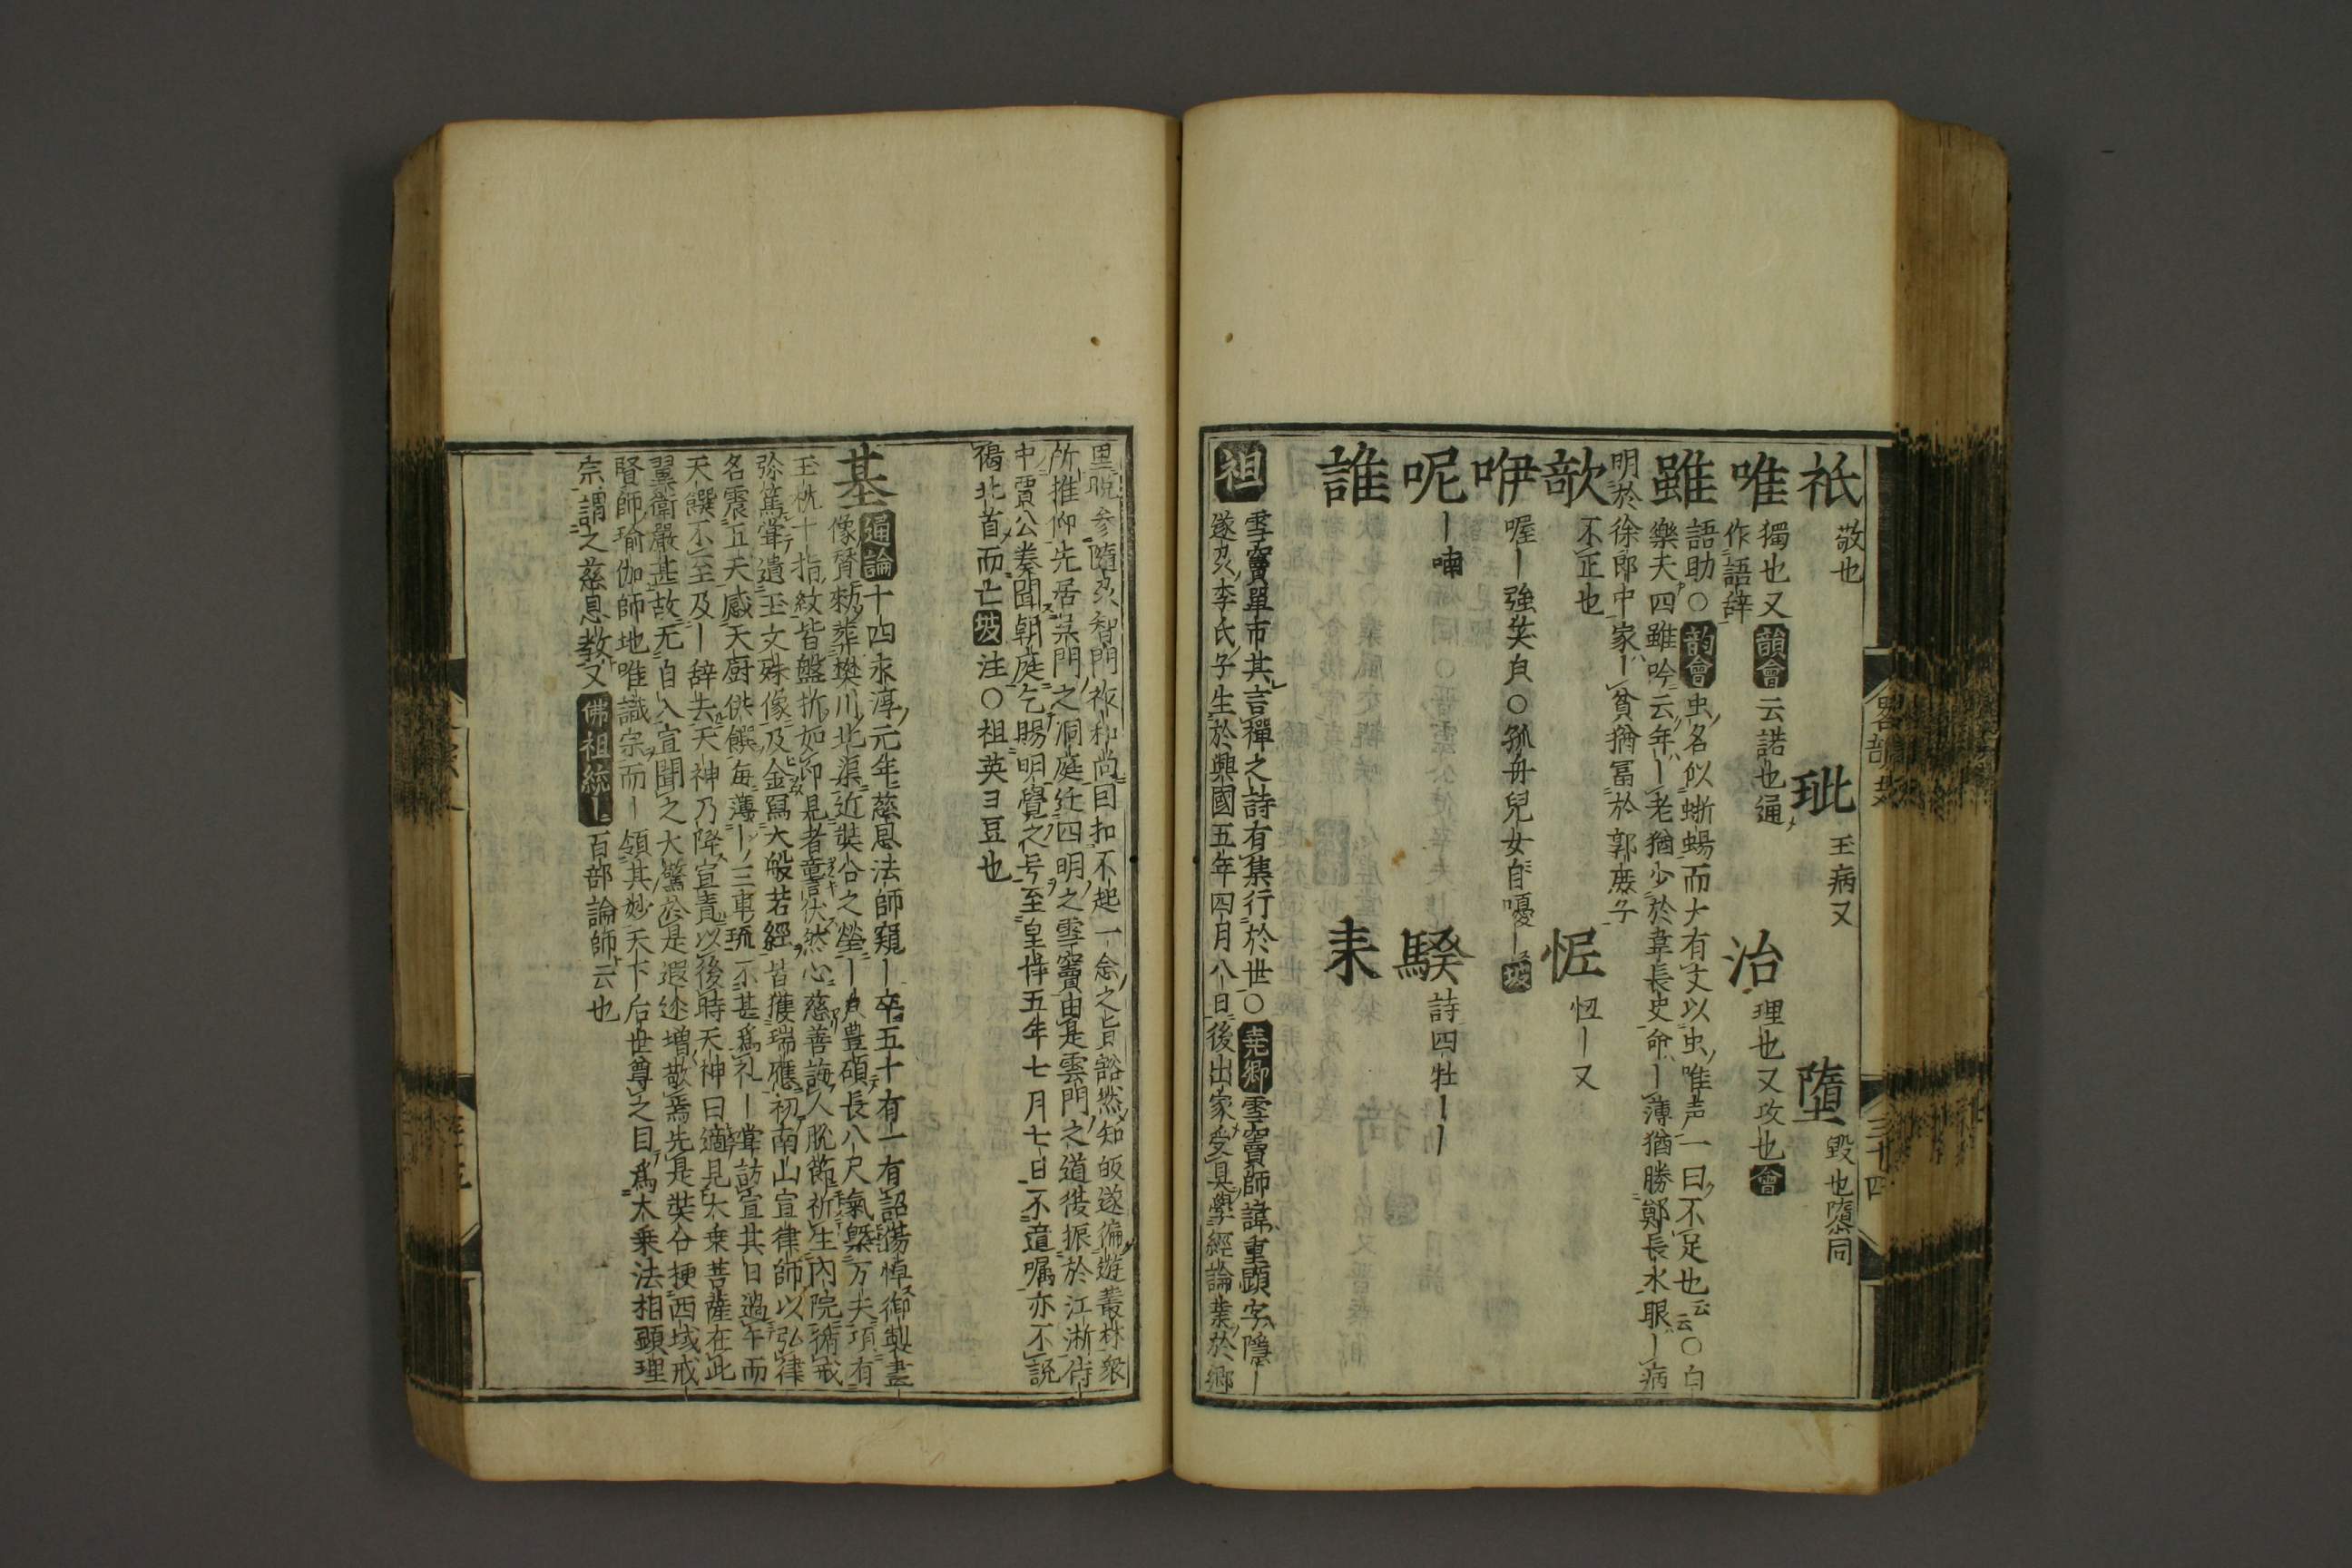 祇 敬也 玼 玉病又 墮 毀也隳同
唯 獨也又 作語辞 韻會 云諾也通 治 理也又攻也 會
雖 語助○ 韵會 虫名似蜥蜴而大有文以虫唯声一曰不足也云云○白
樂夫四雖吟云年ー老猶少於韋長史命ー薄猶勝鄭長水眼ー病
明於徐郎中家ー貧猶冨於郭庶子
歖 不正也 怩 忸ー又
咿 喔ー強笑皃○孤舟兒女自嚘ー 坡
呢 ー喃 騤 詩四牡ーー
誰 耒
祖 雪竇單市其言禪之詩有集行於世○ 堯卿 雪竇師諱重顕字隠ー
遂州李氏子生於興國五年四月八日後出家受具學経論業於郷
里晩参隨州智門祚和尚曰扣不起一念之旨豁然知皈遂徧遊叢林衆
所推仰先居呆門之洞庭迁四明之雪竇由是雲門之道復振於江淅侍
中賈公奏聞朝庭乞賜明覺之号至皇祐五年七月七日不遺嘱亦不説
偈北首而亡 坡 注○祖英ヨ豆也
基 通論 十四永淳元年慈恩法師窺ー卒五十有一有詔傷悼御製畫
像賛勑葬樊川北渠近奘公之塋ー皃豊碩長八尺氣槩万夫項有
玉枕十指紋皆盤折如印見者聾伏然心慈善誨人脱節祈生内院循戒
弥篤甞造玉文殊像及金冩大般若經皆獲瑞應初南山宣律師以弘律
名震五天感天厨供饌毎薄ー三車玩不甚為礼ー甞訪宣其日過午而
天饌不至及ー辞去天神乃降宣責以後時天神曰適見大乗菩薩在此
翼衛嚴甚故无自入宣聞之大驚於是遐迩増敬焉先是奘公梗西域戒
賢師瑜伽師地唯識宗而ー領其妙天下后世尊之目為大乗法相顕理
宗謂之慈恩教又 佛祖統ー 百部論師云也